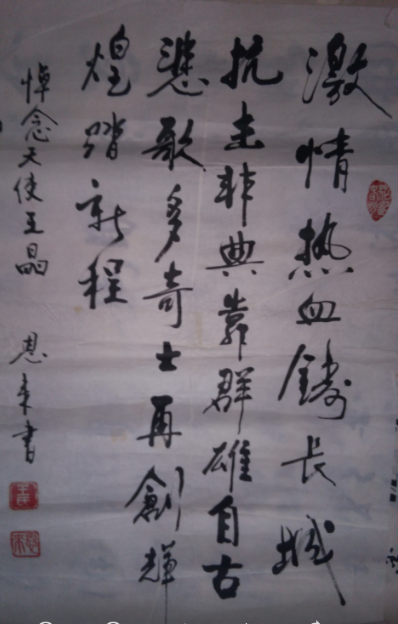 激情热血鑄長城
抗击非典靠群雄自古
悲歌多奇士再創輝
煌踏新程
悼念天使王晶
恩来書